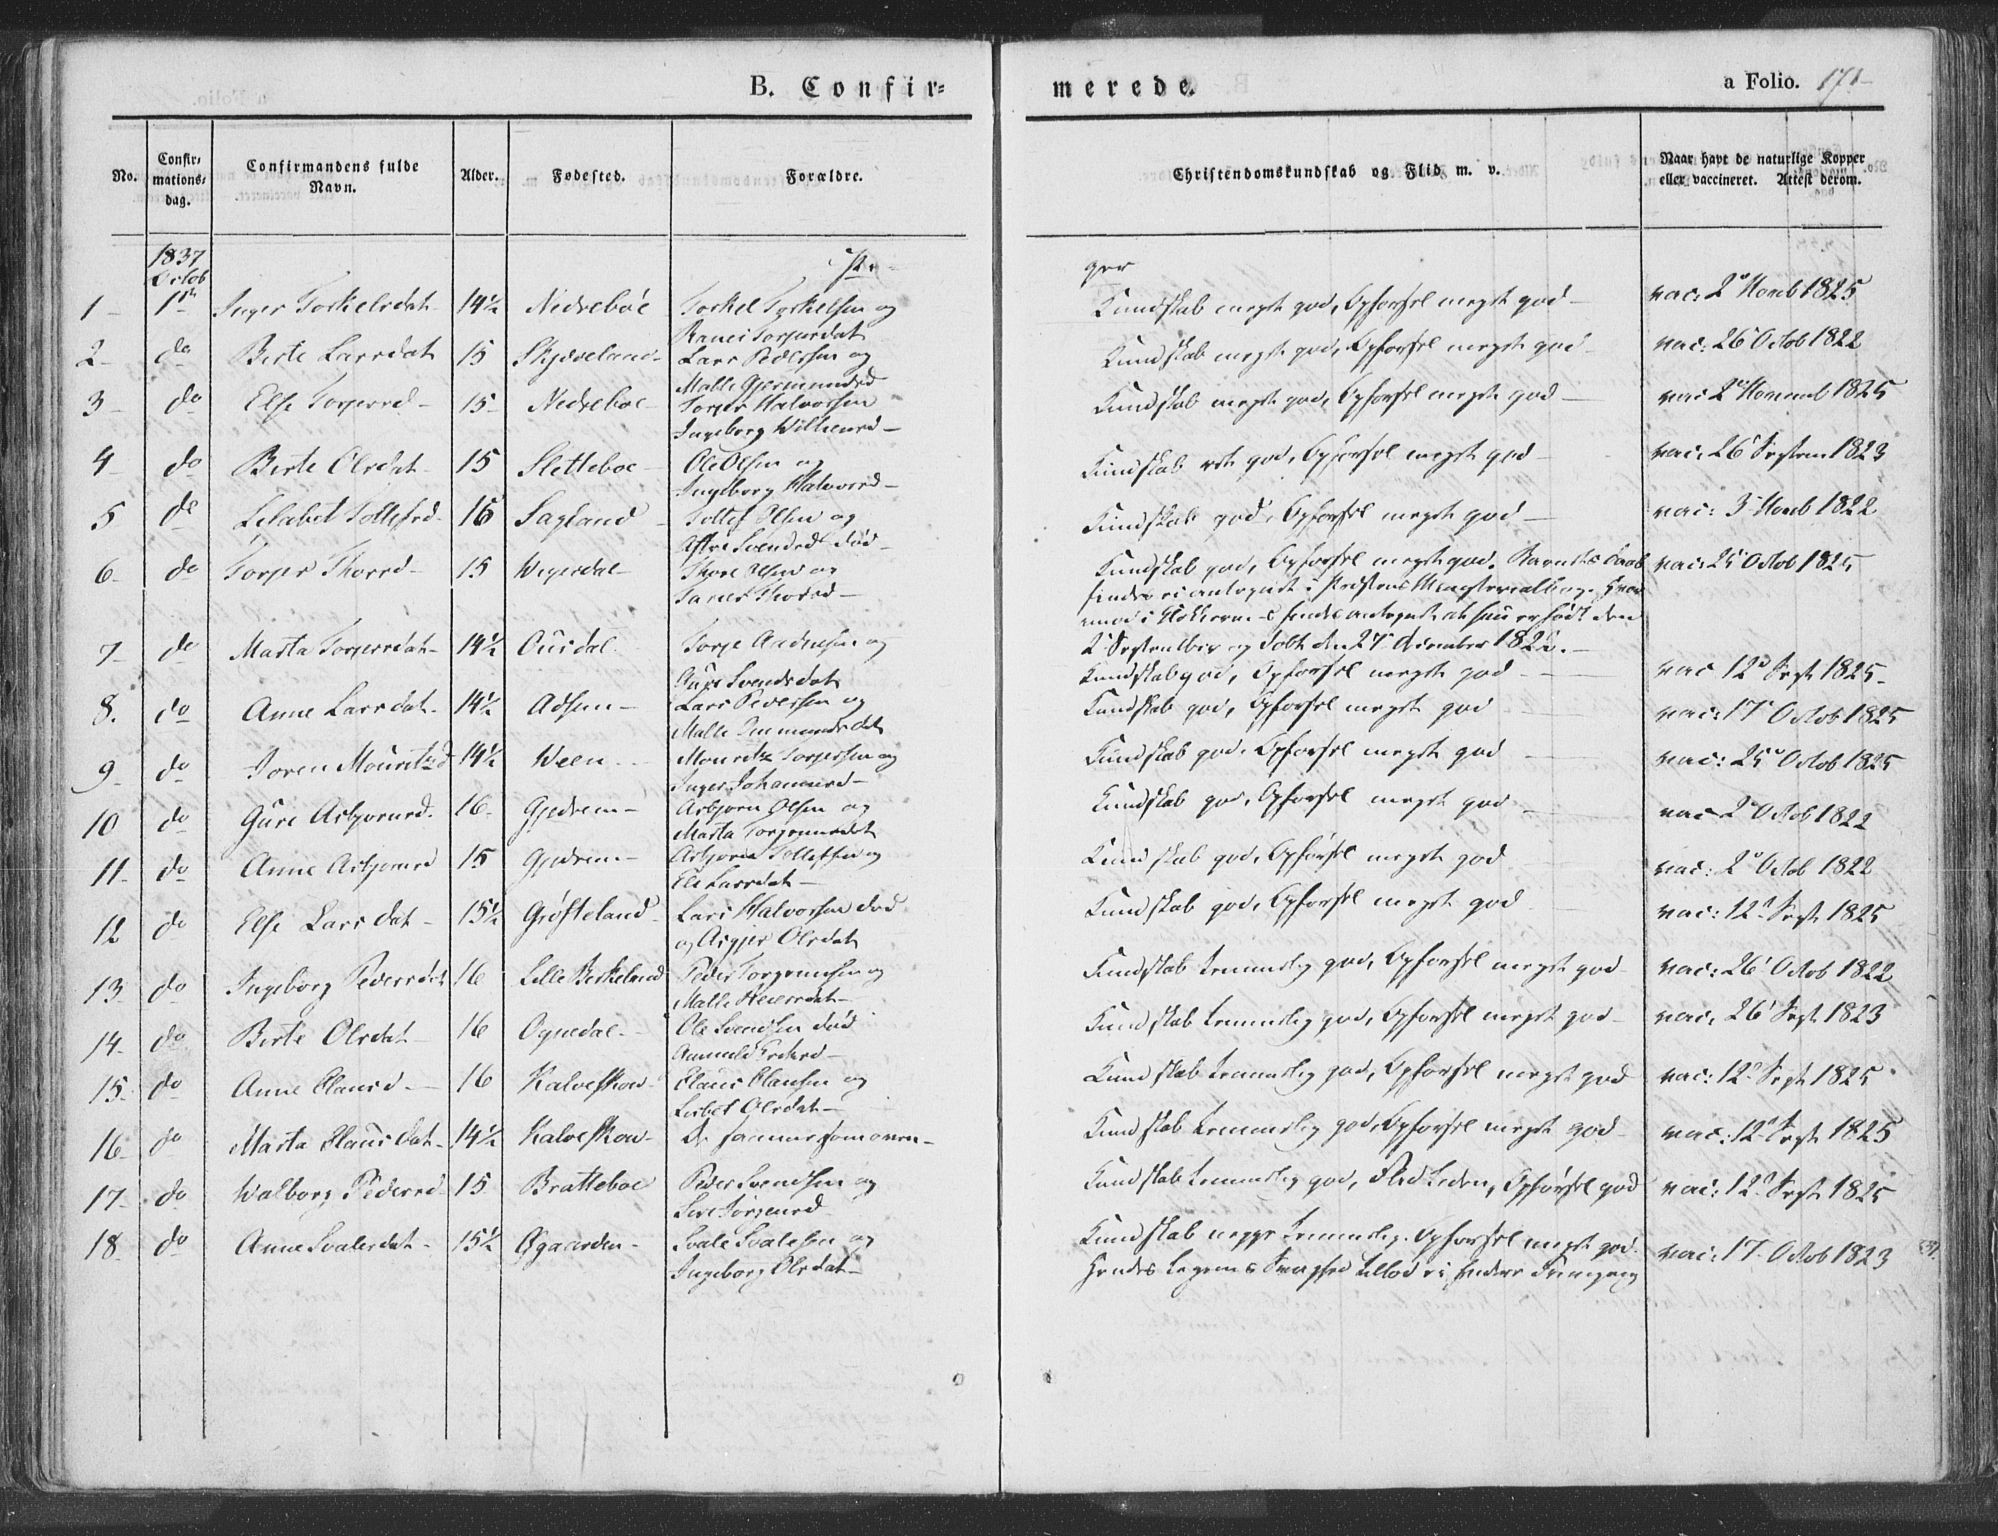 B. Confir=
merede.
a Folio. 171
No.
Confir=
mations=
dag.
Confirmandens fulde
Navn.
Alder.
Fødested.
Forældre.
Christendomskundskab og Flid m. v.
Naar havt de naturlige Kopper
eller vaccineret. Attest derom.
1837
Octob
Pi=
ger
1 1te Inger Torkelsdat 14½ Nedreboe Torkel Torkelsen og Kundskab meget god, Opførsel meget god vac: 2 Novb 1825
Torgersdat
2 do Berte Larsdat 15 Skjæveland Lars Pedersen og Kundskab meget god, Opførsel meget god vac: 26 Octob 1822
Malle
3 do Else Torgersd 15 Nedreboe Torger Halvorsen Kundskab meget god, Opførsel meget god vac 2 Novemb 1825
Ingeborg Willumsd
4 do Berte Olsdat 15 Sletteboe Ole Olsen og Kundskab ret god, Opførsel meget god vac: 26 Septem 1823
Ingeborg Halvorsd
5 do Lisabet Tollefsd 16 Sagland Tollef Olsen og Kundskab god, Opførsel meget god vac: 3 Novb 1822
Svendsd død
6 do Torger Thoresd 15 Thore Olsen og Kundskab god, Opførsel meget god. Barnets Daab vac: 25 Octob 1825
Thoresd
findes ei antegnet i Præstens Ministerialbog. Hvor
imod i Klokkerens findes antegnet at hun er født den
2 Septembr og døbt den 27 December 1822.
7 do Marta Torgersdat 14½ Ousdal Torge Andersen og Kundskab god, Opførsel meget god vac 12 Sept 1825
Svendsdat
8. do Anne Larsdat 14½ Adsen Lars Pedersen og Kundskab god, Opførsel meget god vac: 17 Octob 1825
Malle
9 do Joren Mouritzd 14½ Veen Mouritz Torgersen og Kundskab god, Opførsel meget god vac: 25 Octob 1825
Inger Johannesd
10 do Gure Asbjørnsd. 16 Gjedrem Asbjørn Olsen og Kundskab god, Opførsel meget god vac 2 Octob 1822
Marta
11 do Anne Asbjørnsd 15 Gjedrem Asbjørn Tollefsen og Kundskab god, Opførsel meget god vac: 2 Octob 1822
Eli Larsdat
12 do Else Larsdat 15½ Grøfteland Lars Halvorsen død Kundskab god, Opførsel meget god vac: 12 Sept 1825
og Asgjer Olsdat
13 do Ingeborg Pedersdat 16 Lille Berkeland Peder og Kundskab temmelig god, Opførsel meget god vac: 26 Octob 1822
Malle
14 do Berte Olsdat 16 Ognedal Ole Svendsen død Kundskab temmelig god, Opførsel meget god vac. 26 Sept 1823
15 do Anne Clausd 16 Kalveskou Claus Clausen og Kundskab temmelig god, Opførsel meget god vac: 12 Sept 1825
Lisbet Olsdat
16 do Marta Clausdat 14½ Kalveskou De samme som oven Kundskab temmelig god, Opførsel meget god vac: 12 Sept 1825
17 do Walborg Pedersd 15 Bratteboe Peder Svendsen og Kundskab temmelig god, Flid liden, Opførsel god vac: 12 Sept 1825
Siri Jørgensd
18 do Anne Svalesdat 15½ Øgaarden Svale Svalesen og Kundskab neppe temmelig. Opførsel meget god. vac: 17 Octob 1823
Ingeborg Olsdat Hendes Legems Svaghed tillod ei hendes Fremgang